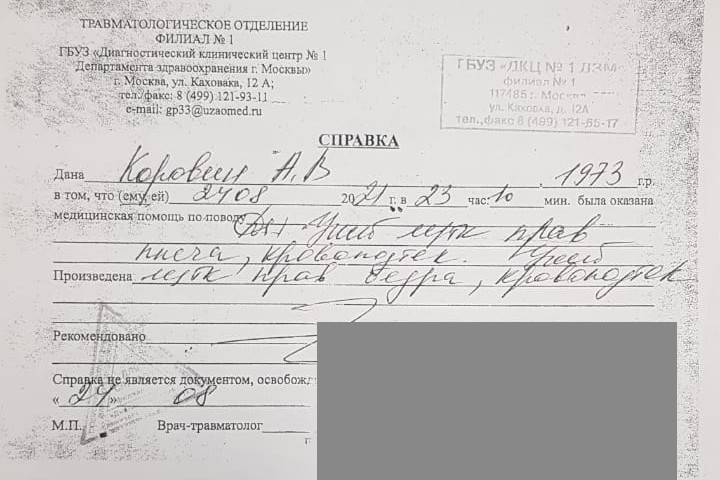 ТРАВМАТОЛОГИЧЕСКОЕ ОТДЕЛЕНИЕ
ФИЛИАЛ № 1
ГБУЗ «Диагностический клинический центр № 1
Департамента здравоохранения г. Москвы»
г. Москва, ул. Каховка, 12 А;
тел./факс: 8 (499) 121-93-11
e-mail: gp33@uzaomed.ru
ГБУЗ «ДКЦ № 1 ДЗМ»
филиал № 1
117485 г. Москва
ул. Каховка, д. 12А
тел., факс 8 (499) 121-65-17
СПРАВКА
Дана Коровин А.В 1973 г.р.
в том, что (ему, ей) 2408 2021 г. в 23 час. 10 мин. была оказана
медицинская помощь по поводу Ds: Ушиб мягк прав
плеча, кровоподтек. Ушиб
Произведена мягк прав бедра, кровоподтек
Рекомендовано
Справка не является документом, освобожд
« 24 » 08
М.П. Врач-травматолог